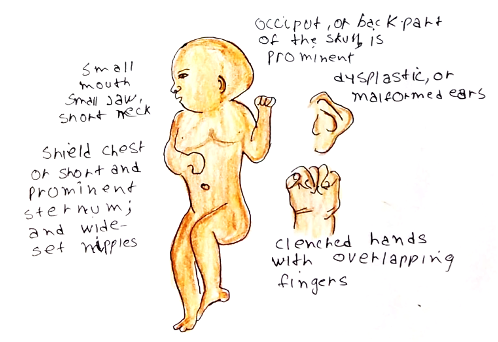 occiput, or back part
of the skull is
prominent
small
mouth
small jaw,
short neck
dysplastic, or
malformed ears
shield chest
or short and
prominent
sternum;
and wide-
set nipples
clenched hands
with overlapping
fingers